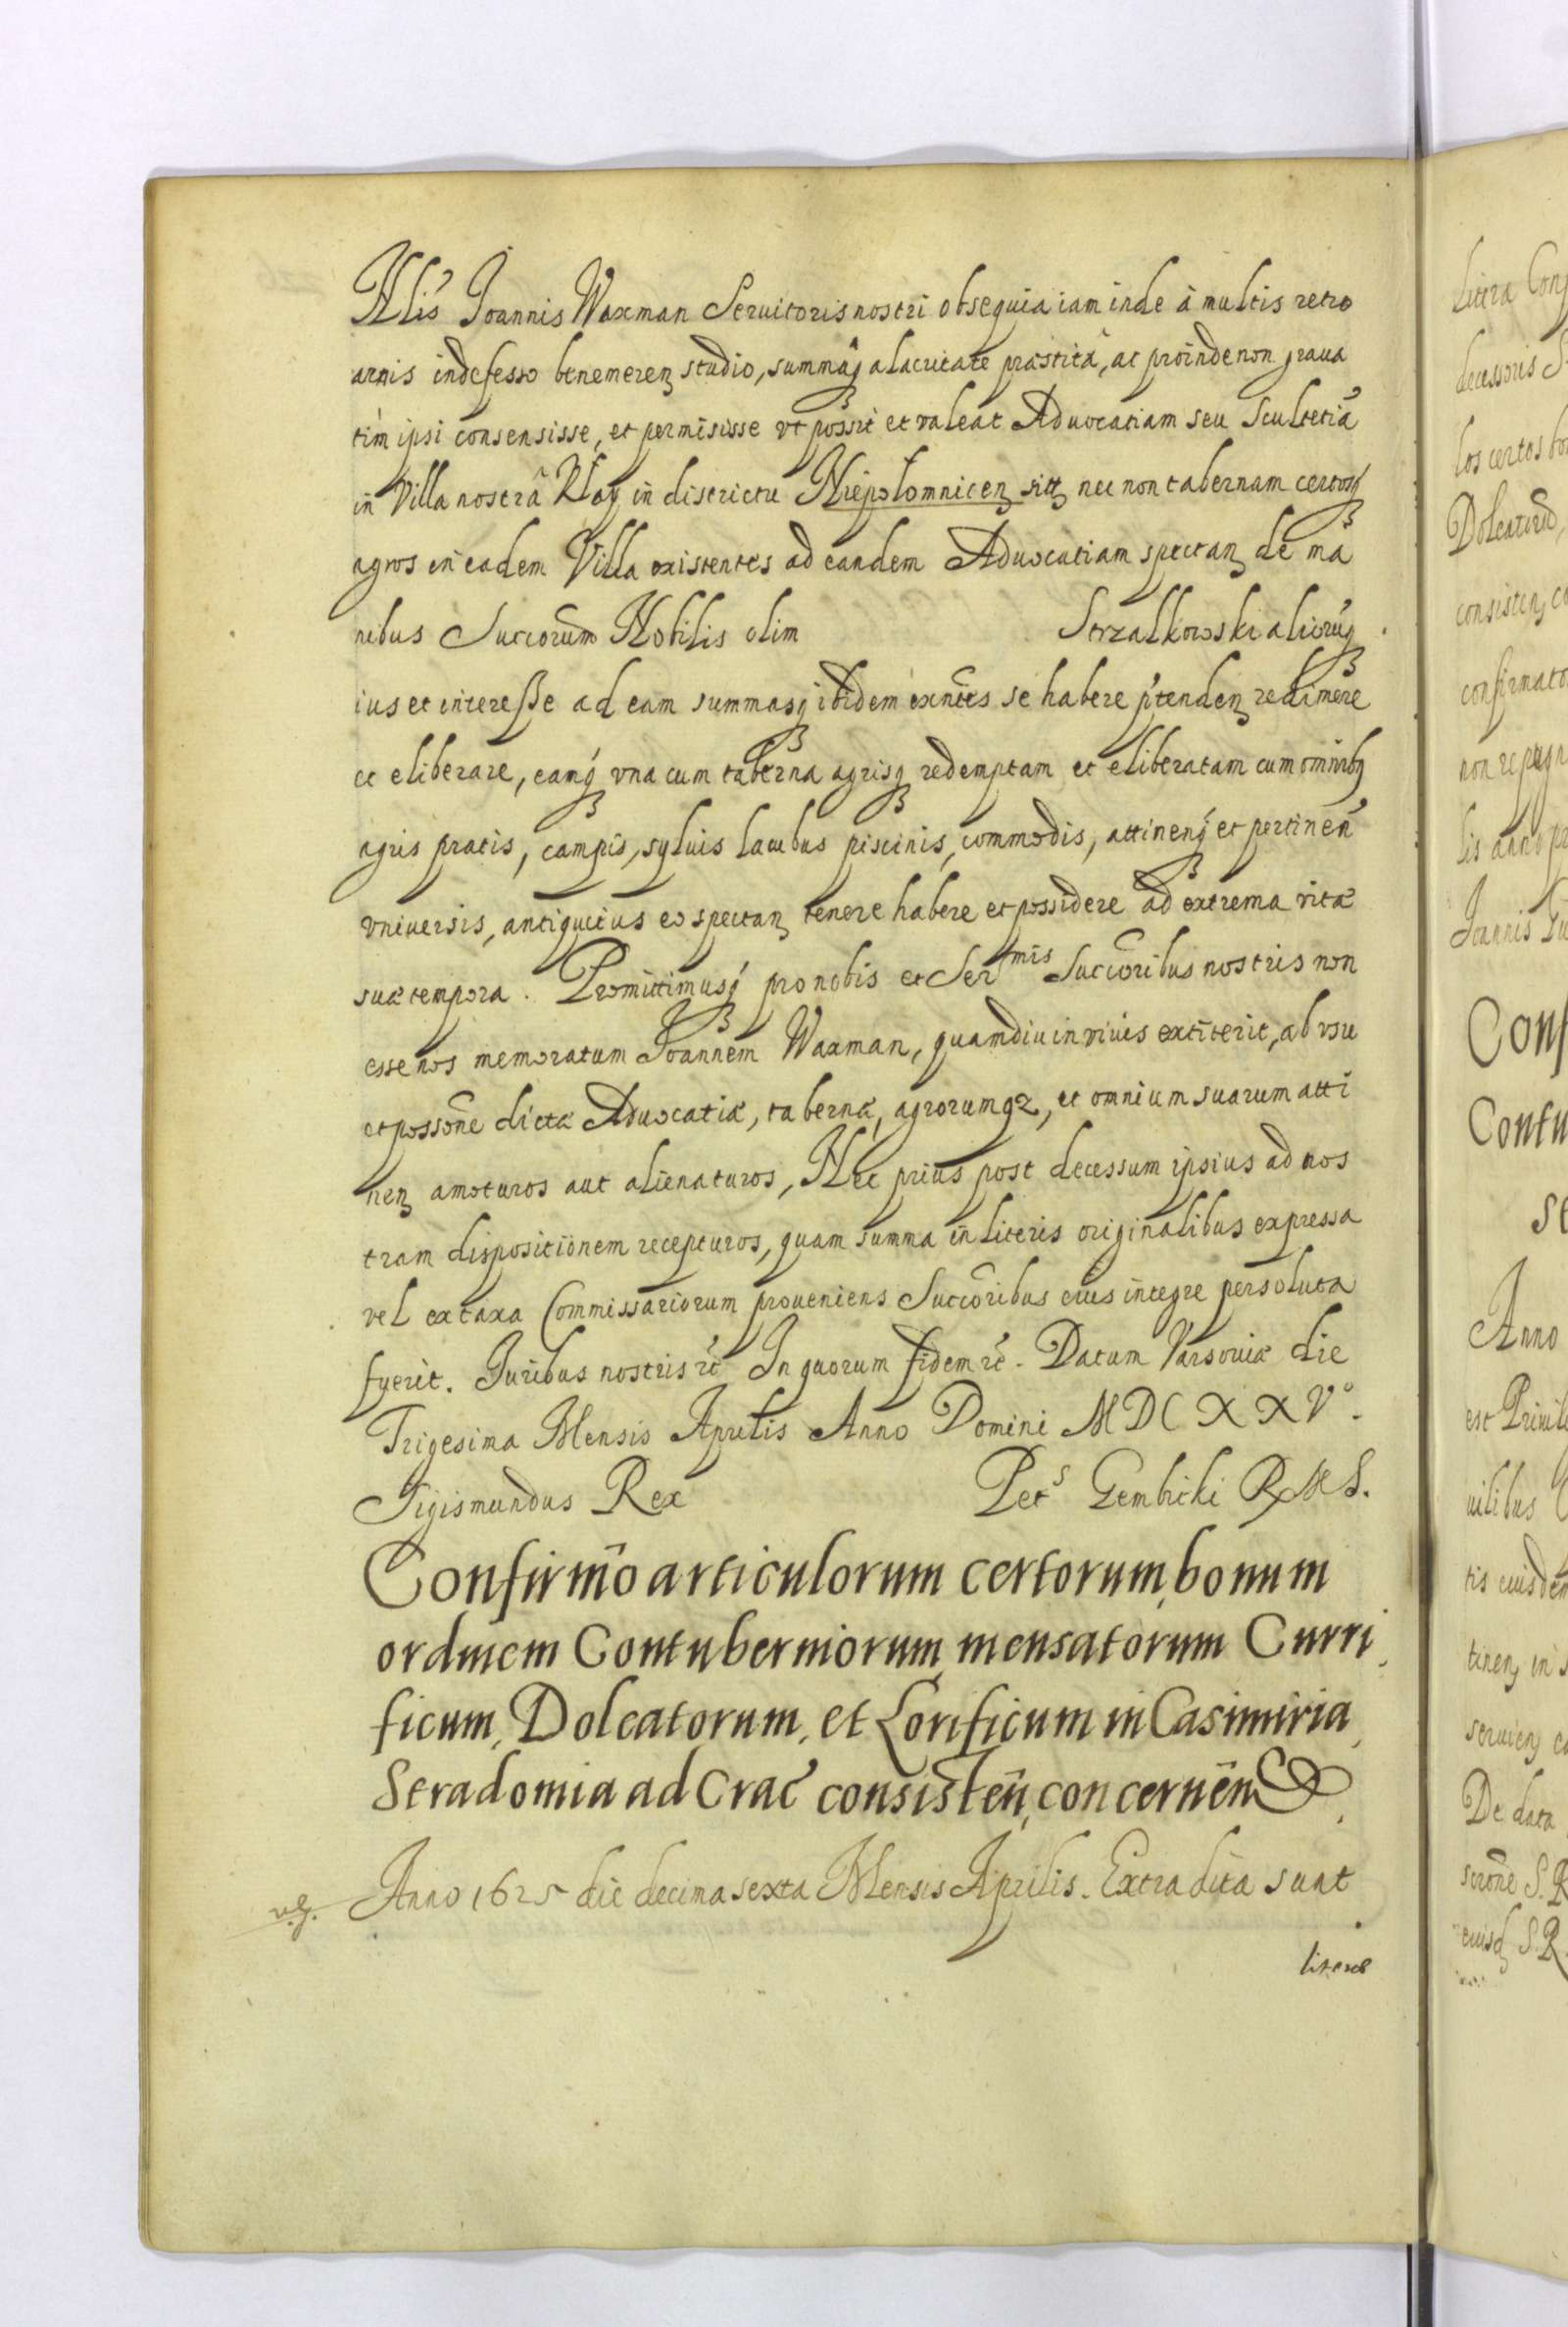 Nlis Joannis Waxman Seruitoris nostri obsequia iam inde à multis retro
annis indefesso benemereñ studio, summaq̃ alacritate præstita, ac proinde non graua
tim ipsi consensisse, et permisisse vt possit et valeat Aduocatiam seu Scultetiã
in Villa nostrâ Kłay in districtu Niepolomniceñ sitã nec non tabernam certosq́
agros in eadem Villa existentes ad eandem Aduocatiam spectañ de ma
nibus Succorum Nobilis olim Strzalkowski aliorũq
ius et interesse ad eam summasq ibidem exñtes se habere p̃tendeñ redimere
et eliberare, eamq́ vna cum taberna agrisq redemptam et eliberatam cum omnibq
agris pratis, campis, syluis lacubus piscinis, commodis, attineñq́ et pertineñ
vniuersis, antiquitus eo spectañ tenere habere et possidere ad extrema vitæ
suæ tempora. Promittimusq́ pro nobis et Ser^mis Succoribus nostris non
esse nos memoratum Joannem Waxman, quamdiu in viuis extiterit, ab vsu
et possone dictæ Aduocatiæ, tabernæ, agrorumqz, et omnium suarum atti
neñ amoturos aut alienaturos, Nec prius post decessum ipsius ad nos
tram dispositionem recepturos, quam summa in literis originalibus expressa
vel ex taxa Commissariorum proueniens Succoribus eius integre persoluta
fuerit. Juribus nostris rc̃ In quorum fidem rc̃. Datum Varsouiæ die
Trigesima Mensis Aprilis Anno Domini MDCXXV°.
Sigismundus Rex Pet^s Gembicki R M S.
Confirmo articulorum certorum, bonum
ordinem Contuberniorum mensatorum Curri
ficum, Doleatorum, et Lorificum in Casimiria,
Stradomia ad Crac consisteñ, conceruẽn
Anno 1625 die decima sexta Mensis Aprilis. Extradita sunt
literæ
Litera
decessoris
los certos
Doleatorũ,
consisteñ
confirmato
Joannis
Conf
Contu
Anno
est Priuile
uilibus
tis eiusdem
tineñ in
seruieñ
De data